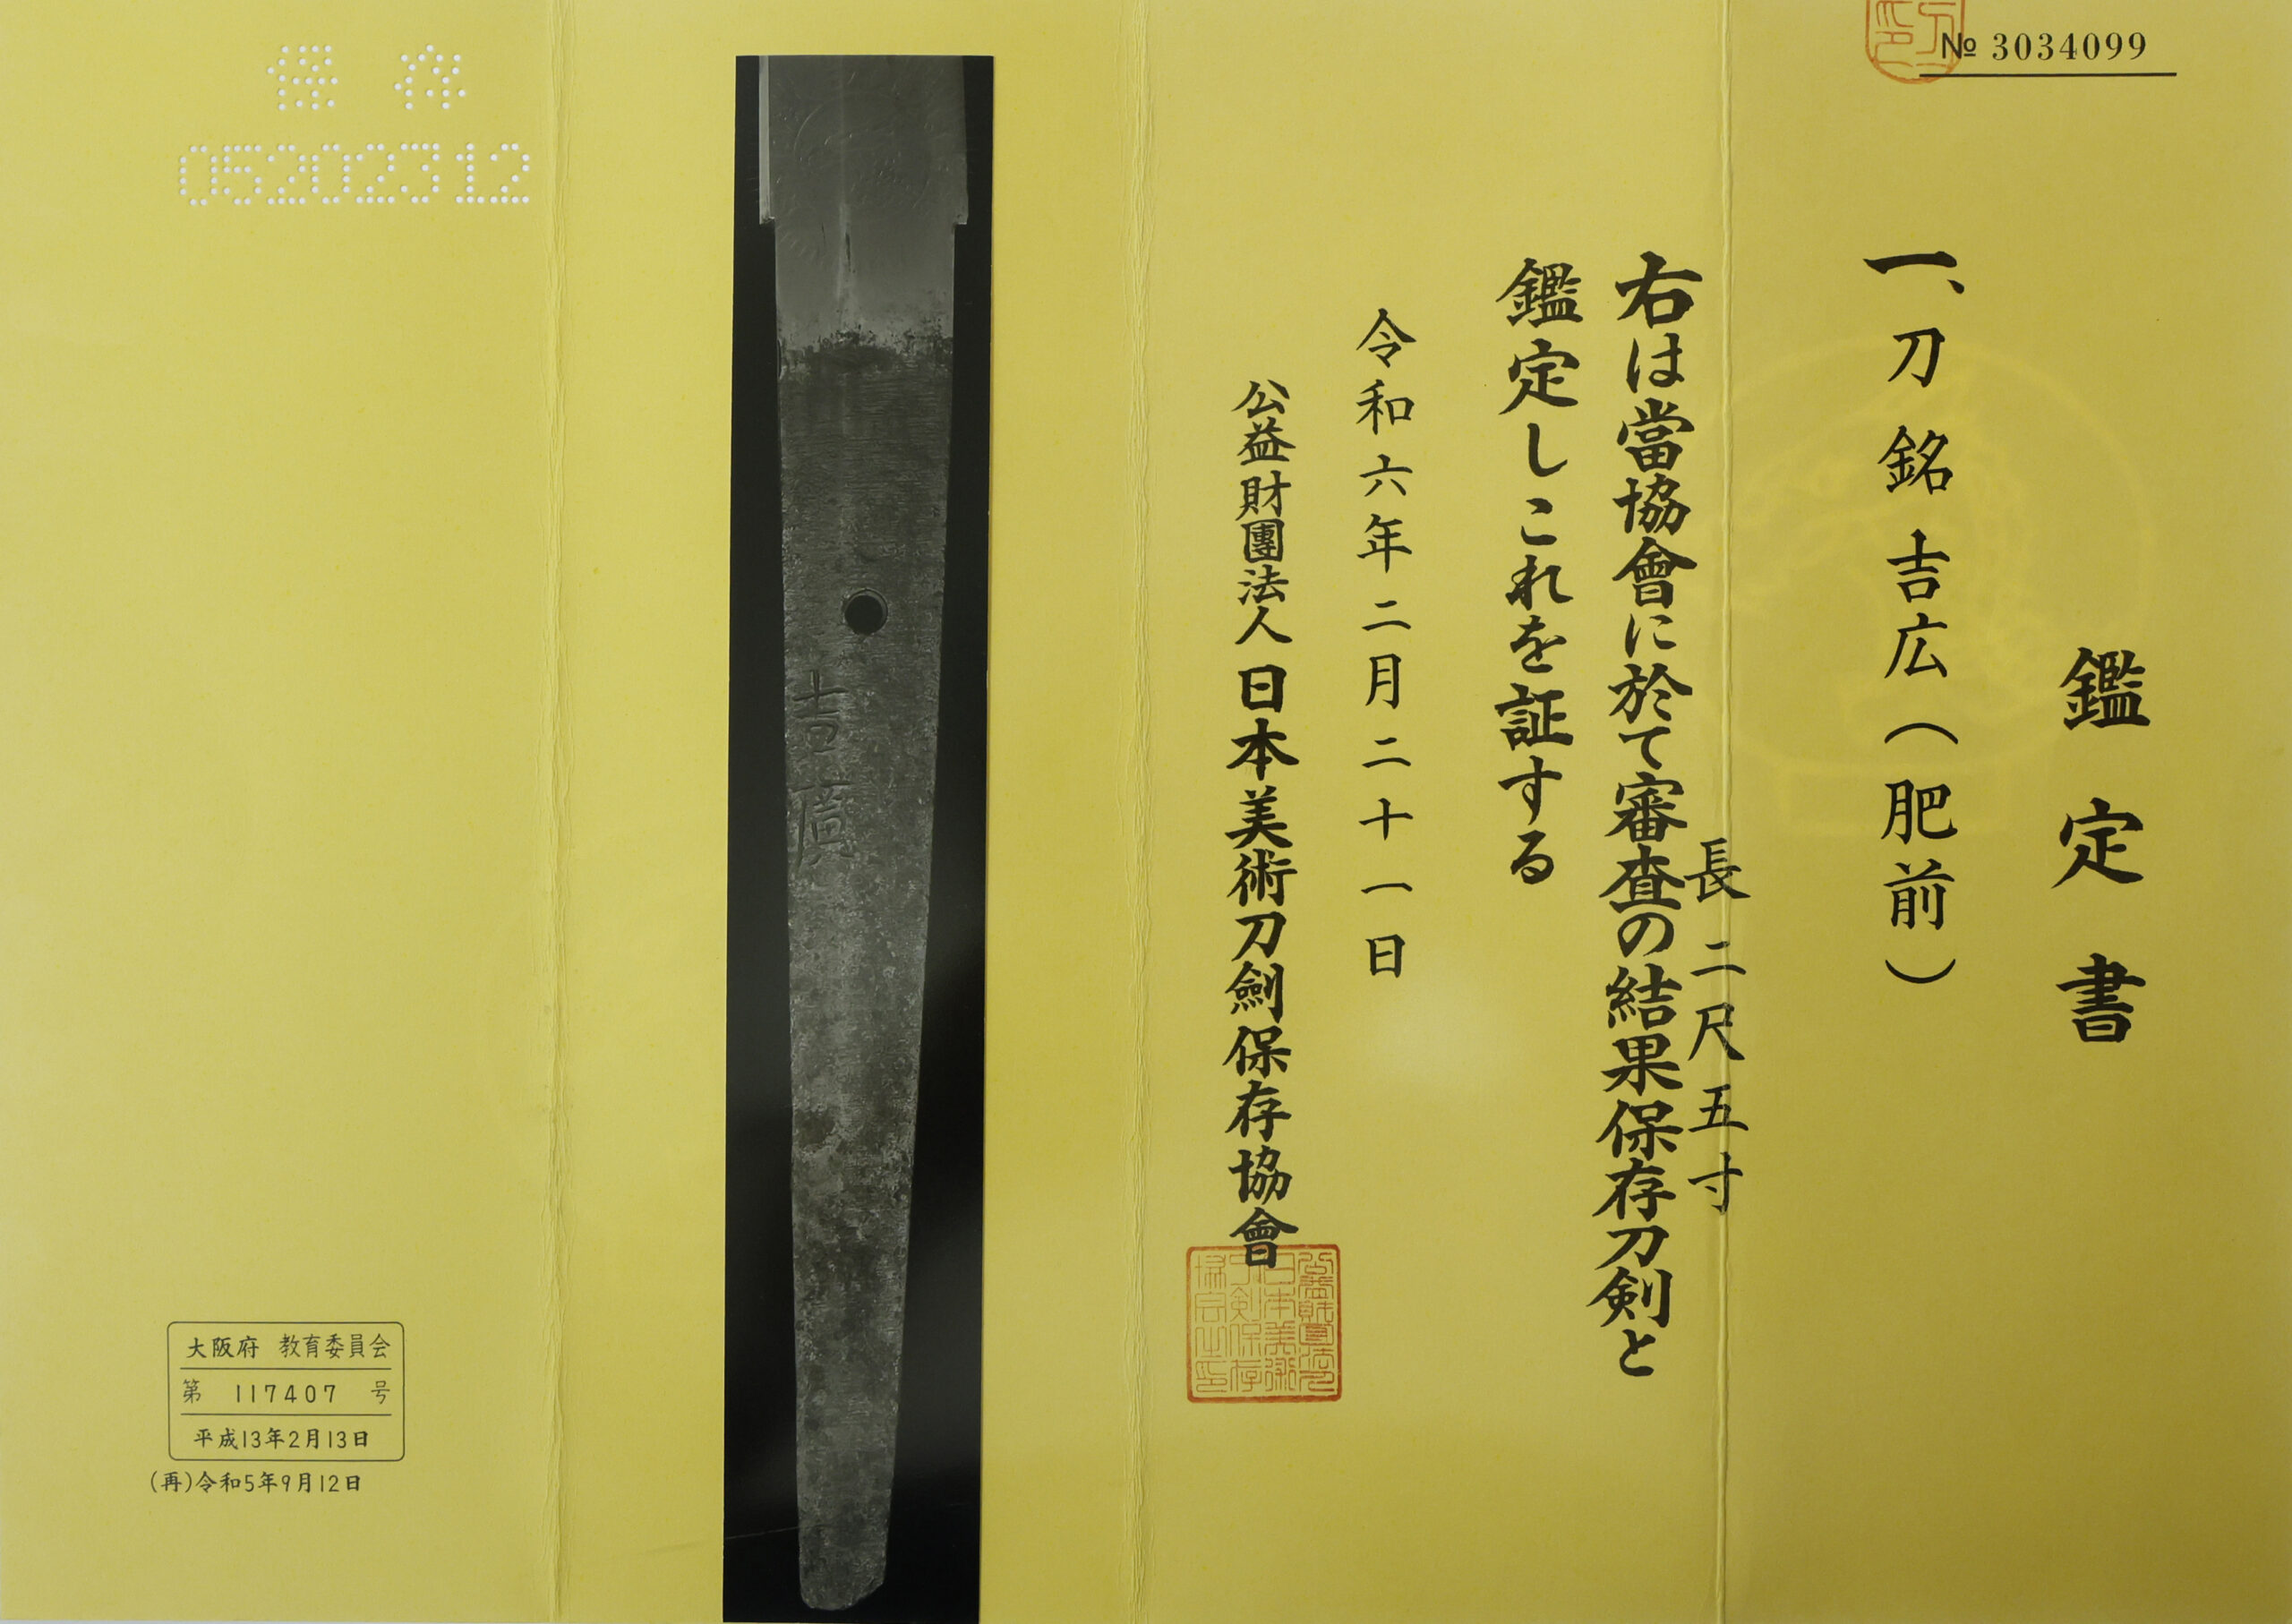 № 3034099
鑑定書
一、刀 銘 吉広(肥前)
長 二尺五寸
右は當協會に於て審査の結果保存刀剣と
鑑定しこれを証する
令和六年二月二十一日
公益財團法人 日本美術刀劍保存協會
吉廣
保存
05202312
大阪府 教育委員会
第 117407 号
平成13年2月13日
(再)令和5年9月12日